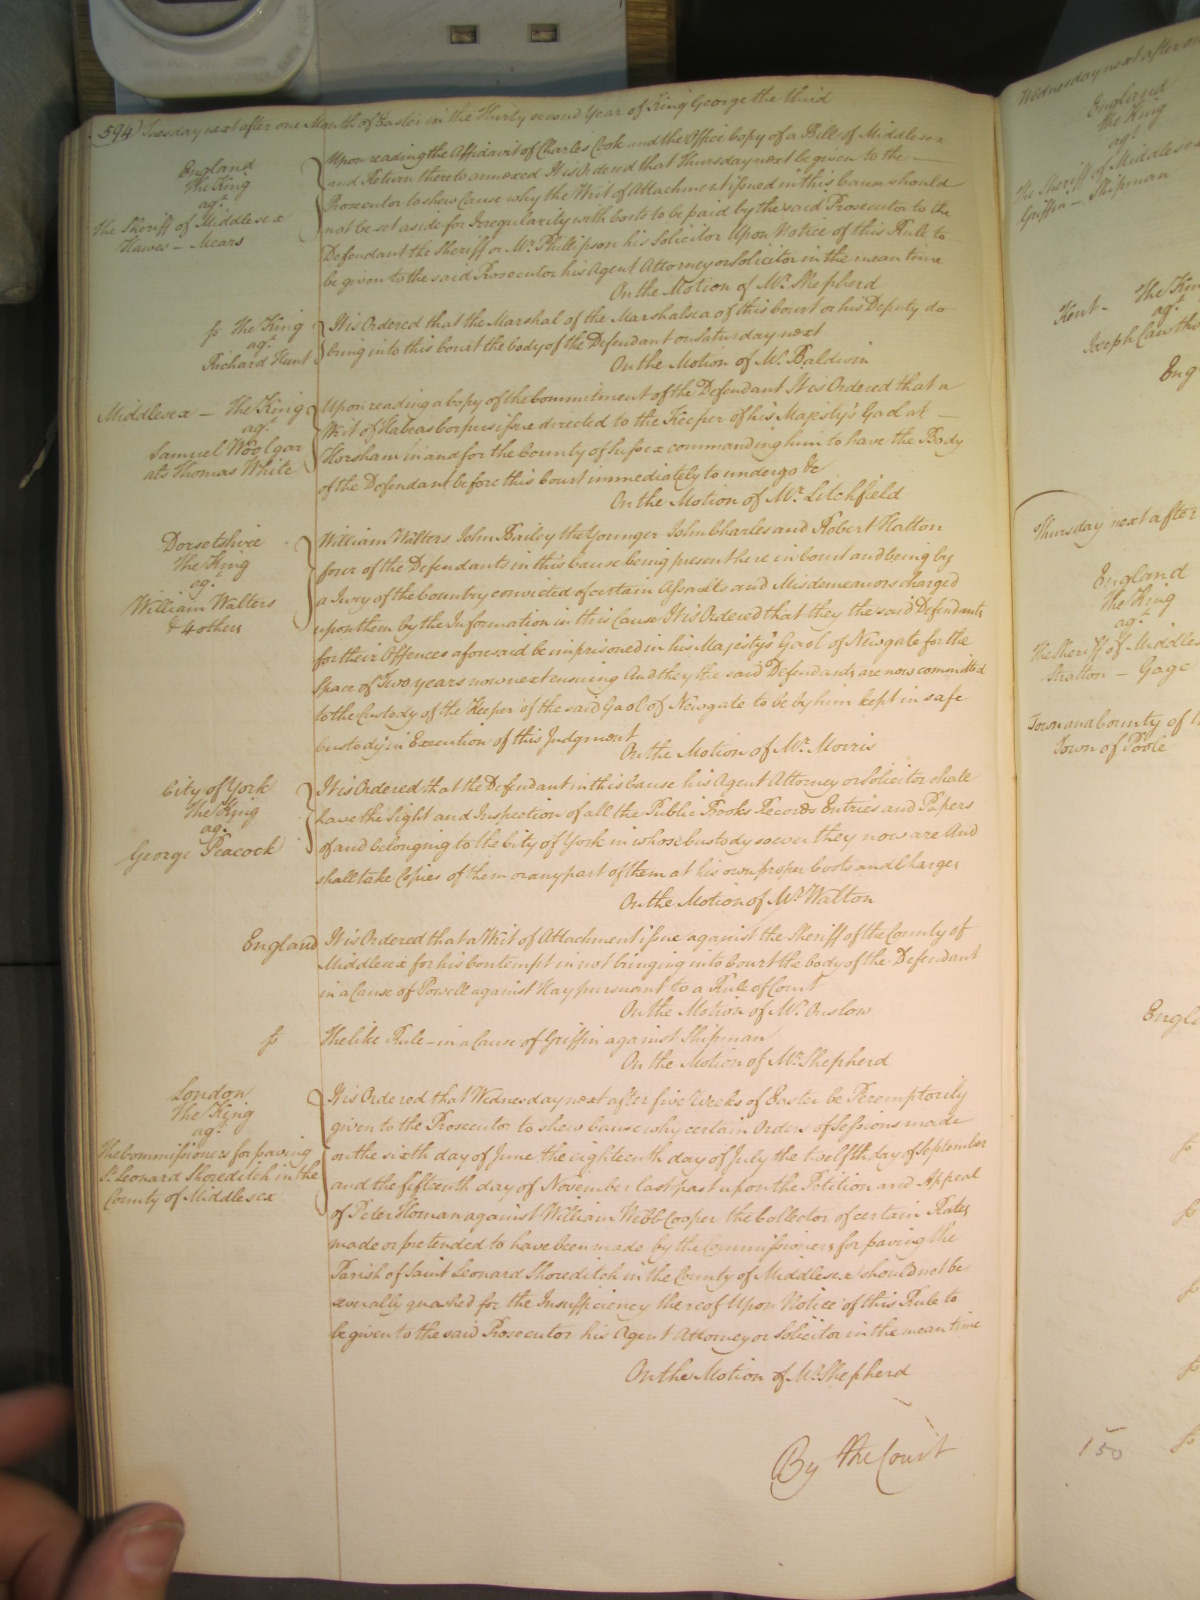 594) Tuesday next after one Month of Easter in the Thirty second Year of King George the third
England
The King
agt.
the Sheriff of Middlesex
Hawes - Mears
Upon reading the Affidavit of Charles Cook and the Office Copy of a Bill of Middlesex
and Return thereto annexed It is Ordered that Thursday next be given to the
Prosecutor to shew Cause why the Writ of Attachment issued in this Cause should
not be set aside for Irregularity with Costs to be paid by the said Prosecutor to the
Defendant the Sheriff or Mr. Phillipson his Solicitor Upon Notice of this Rule to
be given to the said Prosecutor his Agent Attorney or Solicitor in the mean time
On the Motion of Mr. Shepherd
The King
agt.
Richard Hunt
It is Ordered that the Marshal of the Marshalsea of this Court or his Deputy do
bring into this Court the body of the Defendant on Saturday next
On the Motion of Mr. Baldwin
Middlesex - The King
agt.
Samuel Woolgar
als Thomas White
Upon reading a Copy of the Commitment of the Defendant It is Ordered that a
Writ of Habeas Corpus issue directed to the Keeper of his Majesty's Gaol at -
Horsham in and for the County of Sussex commanding him to have the Body
of the Defendant before this Court immediately to undergo &c
On the Motion of Mr. Litchfield
Dorsetshire
The King
agt.
William Walters
& 4 others
William Walters John Bailey the Younger John Charles and Robert Hatton
four of the Defendants in this Cause being present here in Court and being by
a Jury of the Country convicted of certain Assaults and Misdemeanors charged
upon them by the Information in this Cause It is Ordered that they the said Defendants
for their Offences aforesaid be imprisoned in his Majesty's Gaol of Newgate for the
Space of Two years now next ensuing And they the said Defendants are now committed
to the Custody of the Keeper of the said Gaol of Newgate to be by him kept in safe
Custody in Execution of this Judgment
On the Motion of Mr. Morris
City of York
The King
agt.
George Peacock
It is Ordered that the Defendant in this Cause his Agent Attorney or Solicitor shall
have the Sight and Inspection of all the Public Books Records Entries and Papers
of and belonging to the City of York in whose Custody soever they now are And
shall take Copies of them or any part of them at his own proper Costs and Charges
On the Motion of Mr. Walton
England
It is Ordered that a Writ of Attachment issue against the Sheriff of the County of
Middlesex for his Contempt in not bringing into Court the body of the Defendant
in a Cause of Powell against Hay pursuant to a Rule of Court
On the Motion of Mr. Onslow
The like Rule - in a Cause of Griffin against Shipman
On the Motion of Mr. Shepherd
London
The King
agt.
The Commissioners for paving
St. Leonard Shoreditch in the
County of Middlesex
It is Ordered that Wednesday next after five Weeks of Easter be Peremptorily
given to the Prosecutor to shew Cause why certain Orders of Sessions made
on the sixth day of June the eighteenth day of July the twelfth day of September
and the fifteenth day of November last past upon the Petition and Appeal
of Peter Homan against William Webb Cooper the Collector of certain Rates
made or pretended to have been made by the Commissioners for paving the
Parish of Saint Leonard Shoreditch in the County of Middlesex should not be
severally quashed for the Insufficiency thereof Upon Notice of this Rule to
be given to the said Prosecutor his Agent Attorney or Solicitor in the mean time
On the Motion of Mr. Shepherd
By the Court
Wednesday next after
England
The King
agt.
The Sheriff of Middlesex
Griffin - Shipman
Kent - The King
agt.
Joseph
Thursday next after
England
The King
agt.
The Sheriff of Middlesex
Stratton - Gage
Town and County of
Town of Poole
150